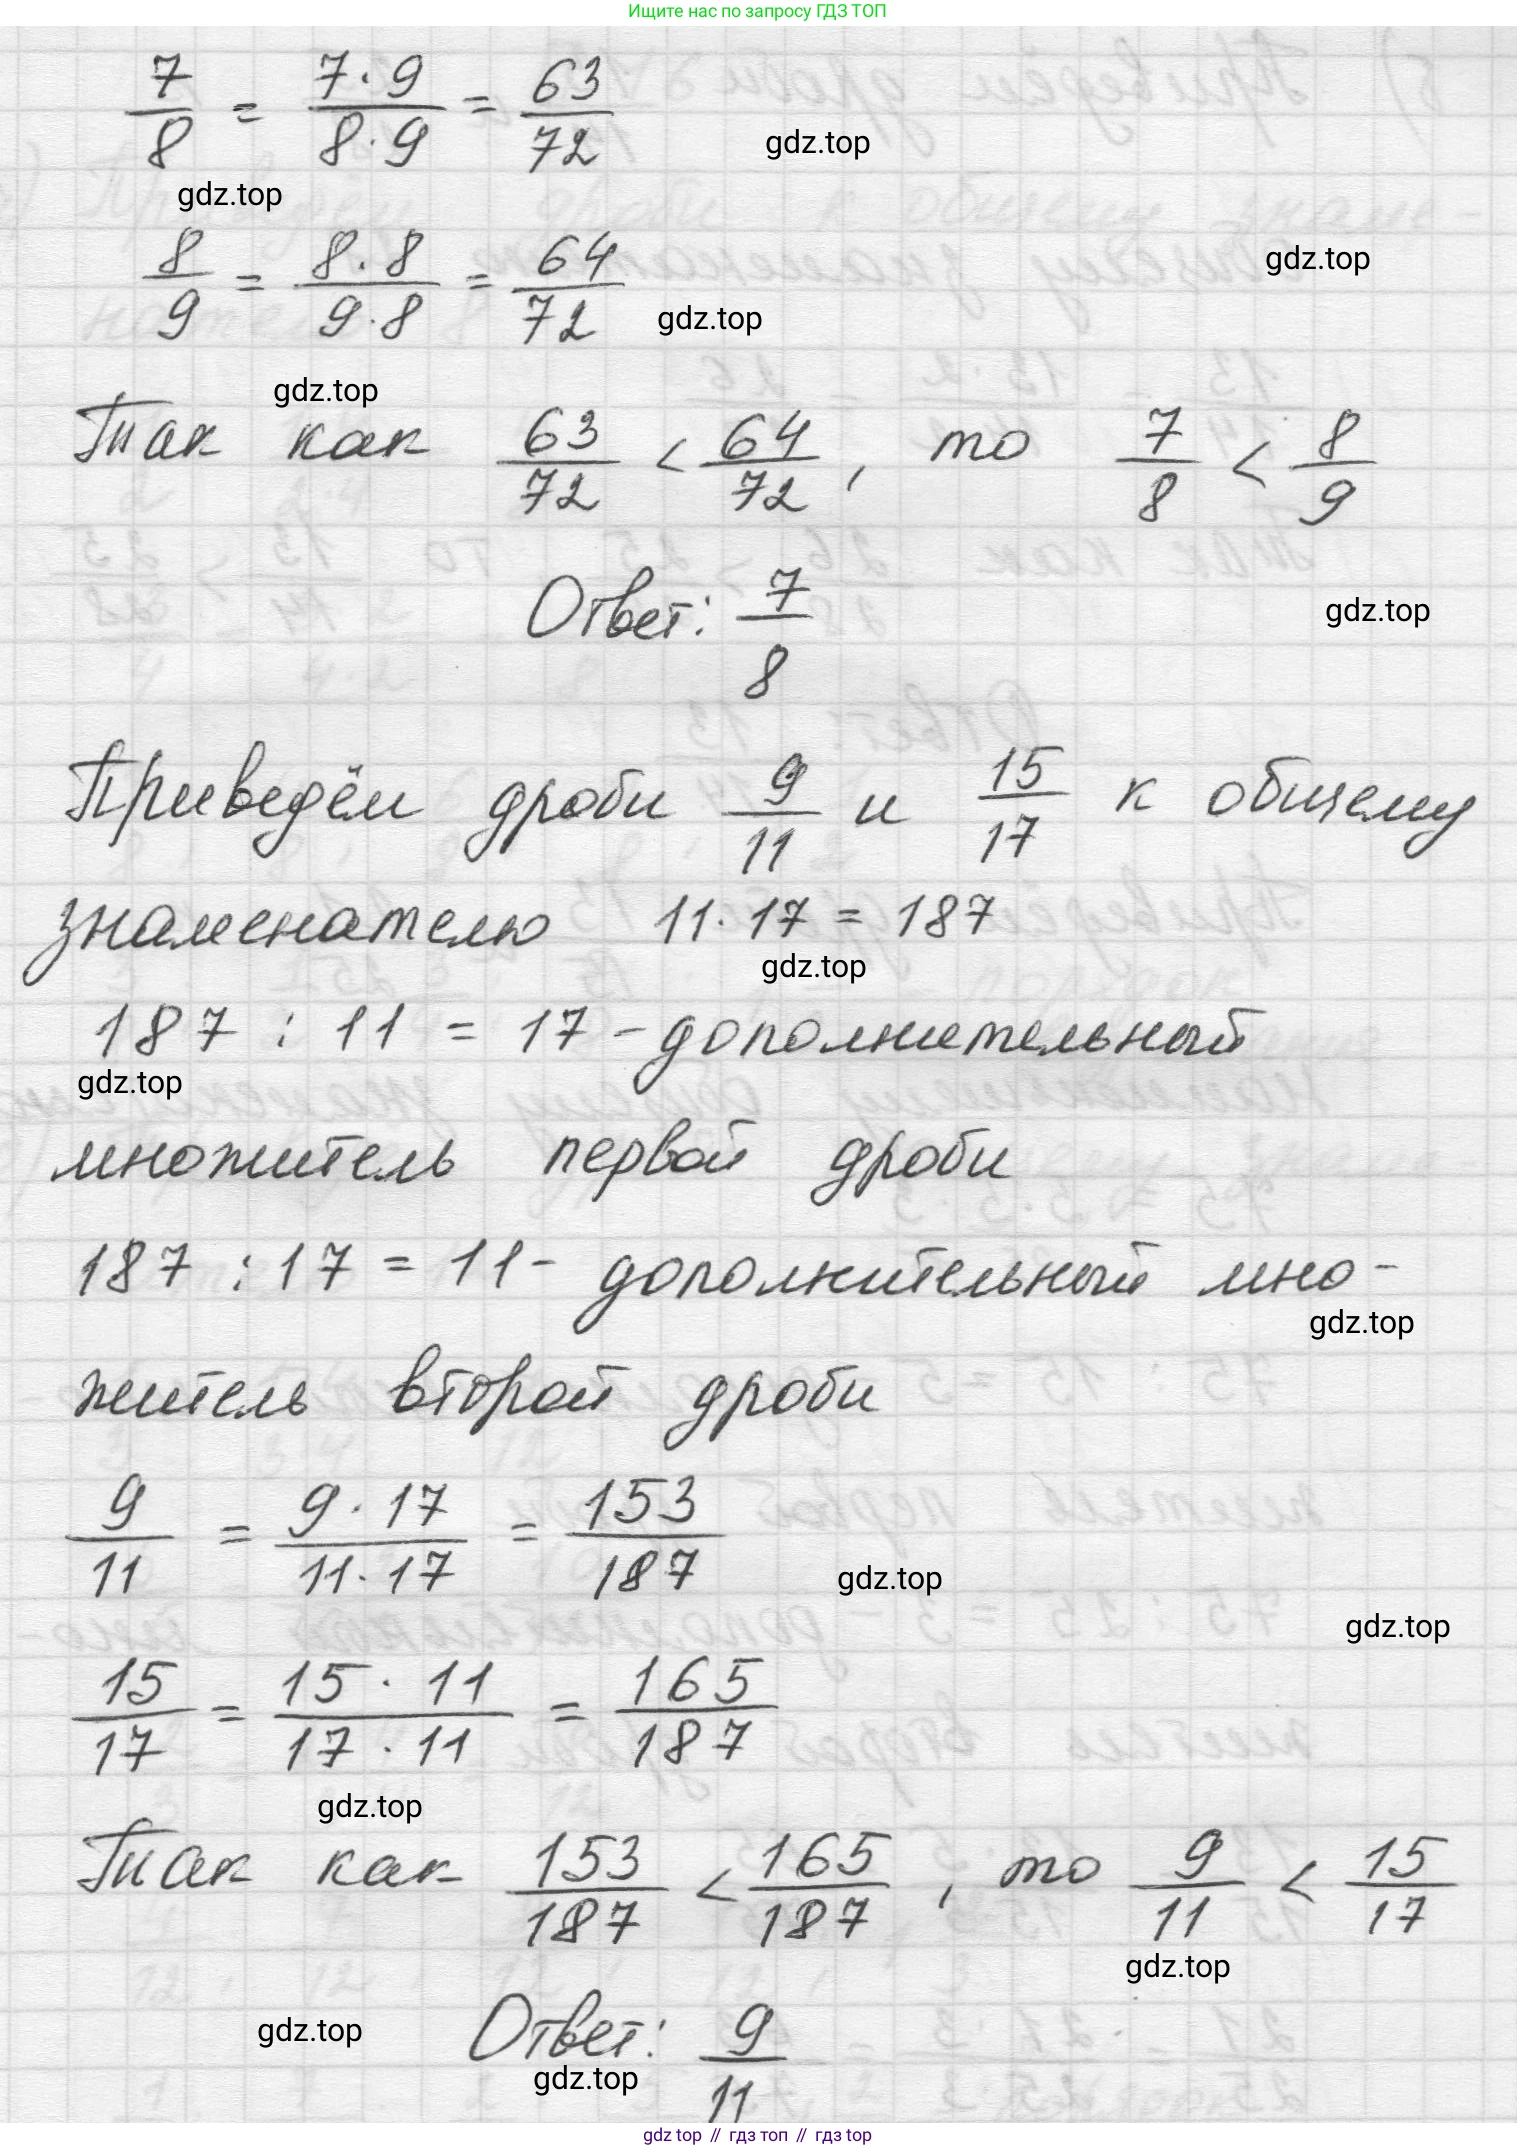 Ищите нас по запросу ГДЗ ТОП
7/8 = 7·9/8·9 = 63/72
gdz.top
gdz.top
8/9 = 8·8/9·8 = 64/72
gdz.top
gdz.top
gdz.top
Так как 63/72 < 64/72, то 7/8 < 8/9
Ответ: 7/8
gdz.top
Приведём дроби 9/11 и 15/17 к общему
знаменателю 11·17 = 187
gdz.top
187 : 11 = 17 - дополнительный
gdz.top
множитель первой дроби
187 : 17 = 11 - дополнительный мно-
gdz.top
житель второй дроби
9/11 = 9·17/11·17 = 153/187
gdz.top
gdz.top
15/17 = 15·11/17·11 = 165/187
gdz.top
Так как 153/187 < 165/187, то 9/11 < 15/17
gdz.top
gdz.top
Ответ: 9/11
gdz.top
gdz top // гдз топ // гдз top